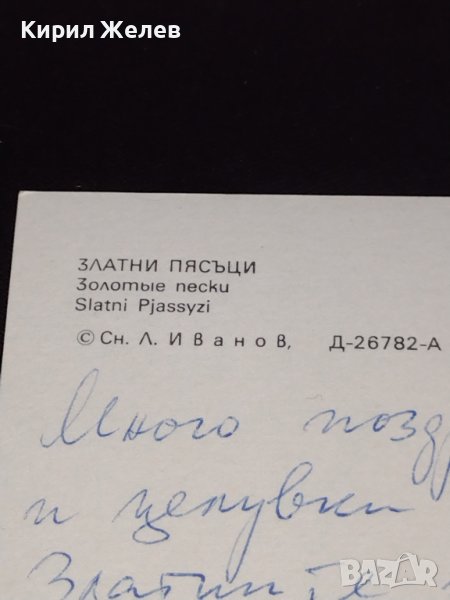 Кирил Желев
ЗЛАТНИ ПЯСЪЦИ
Золотые пески
Slatni Pjassyzi
© Сн. Л. Иванов, Д-26782-А
Много позд
и целувки
Златните
BAZAR.bg